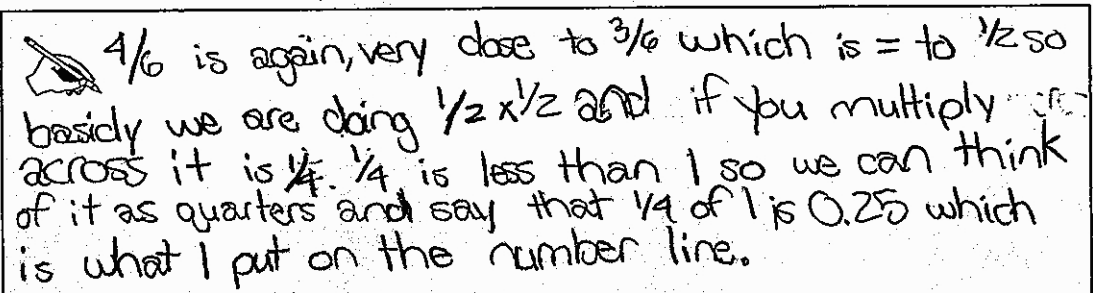 4/6 is again, very close to 3/6 which is = to 1/2 so
basicly we are doing 1/2 x 1/2 and if you multiply
across it is 1/4. 1/4 is less than 1 so we can think
of it as quarters and say that 1/4 of 1 is 0.25 which
is what I put on the number line.